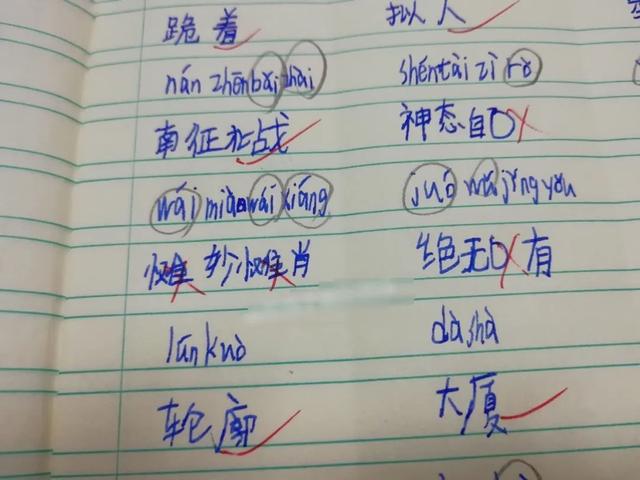 跪着 拟人
nán zhēn bǎi zhài shéntài zì rò
南征北战 神态自口
wái miào wái xiáng juó wǎi jǐng yǒu
妙 肖 绝无口有
lún kuò dàshà
轮廓 大厦